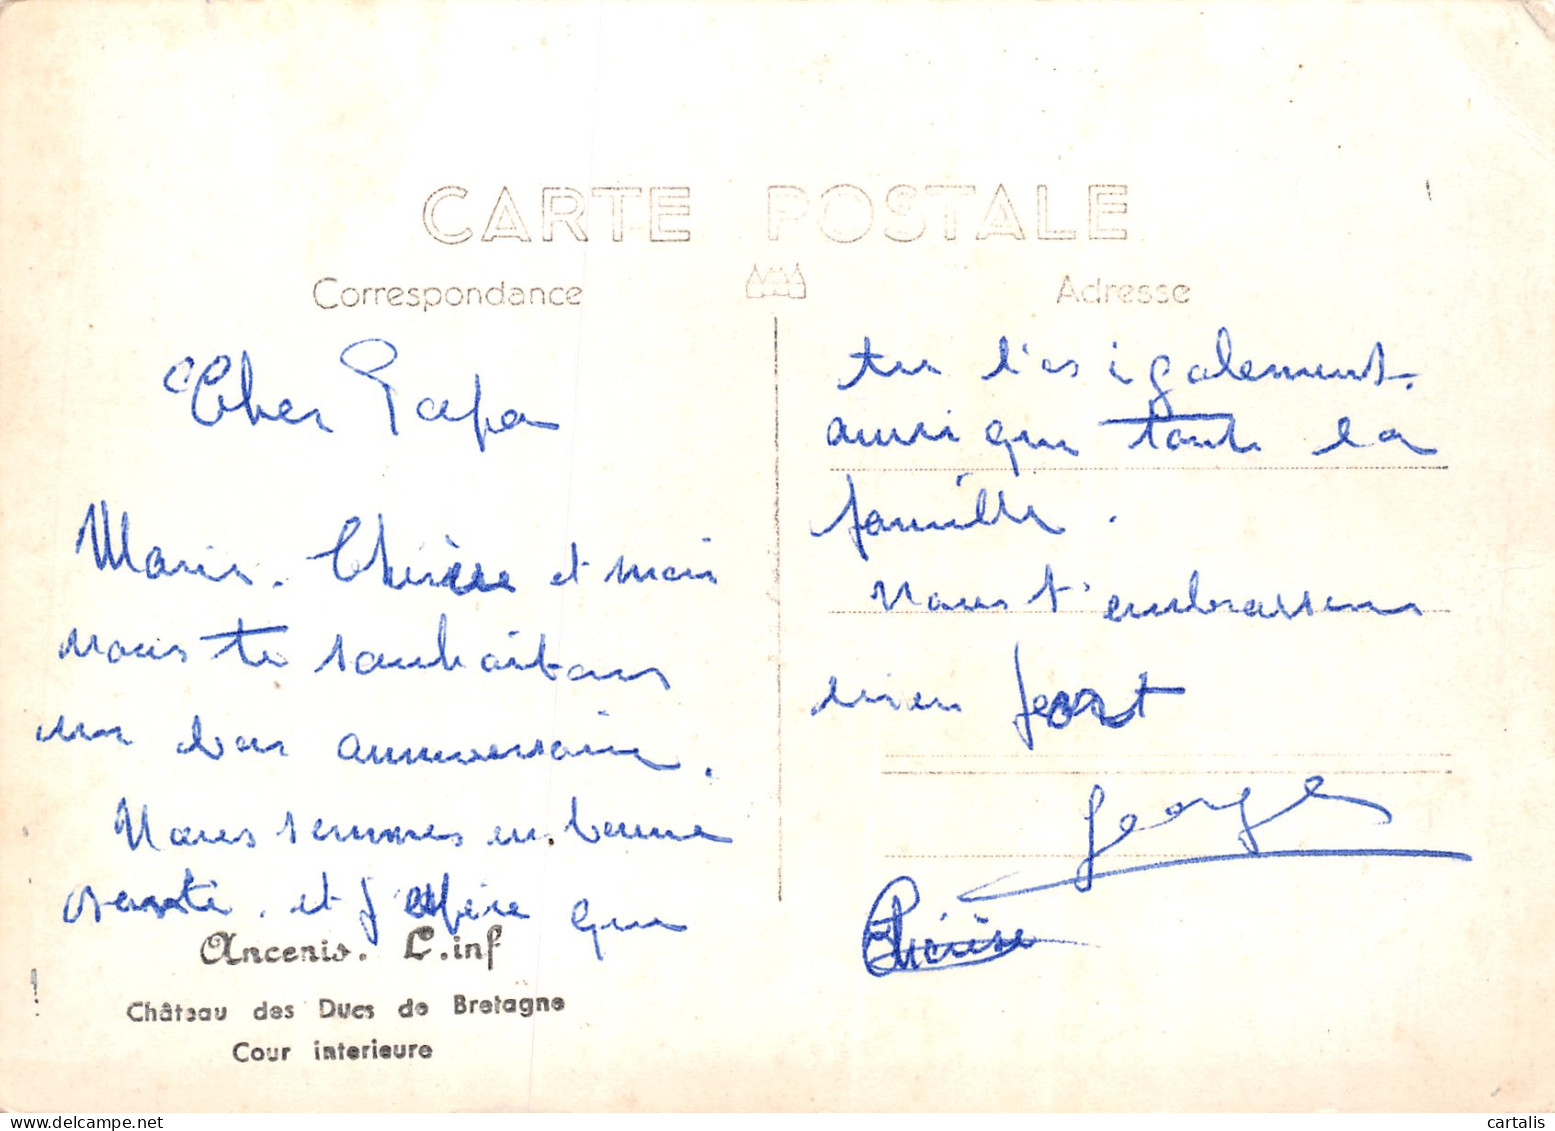 CARTE POSTALE
Correspondance
Adresse
Cher Papa
Marie. Thérèse et moi
nous te souhaitons
un bon anniversaire.
Nous sommes en bonne
santé. et j'espère que
Ancenis. L.inf
Château des Ducs de Bretagne
Cour interieure
tu l'es également.
aussi que toute la
famille.
Nous t'embrassons
bien fort
Georges
Thérèse
cartalis
delcampe.net